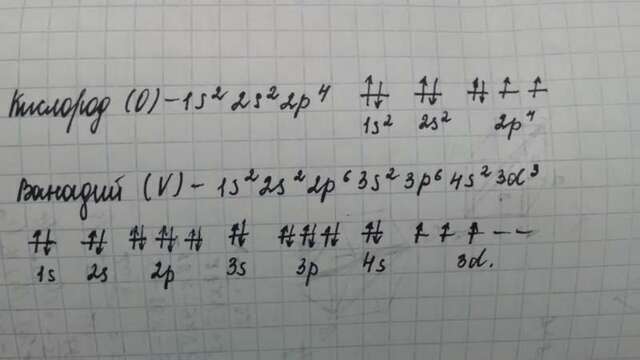 Кислород (O) – 1s² 2s² 2p⁴ ↑↓ ↑↓ ↑↓ ↑ ↑
1s² 2s² 2p⁴
Ванадий (V) – 1s² 2s² 2p⁶ 3s² 3p⁶ 4s² 3d³
↑↓ ↑↓ ↑↓ ↑↓ ↑↓ ↑↓ ↑↓ ↑↓ ↑↓ ↑↓ ↑ ↑ ↑ – –
1s 2s 2p 3s 3p 4s 3d.